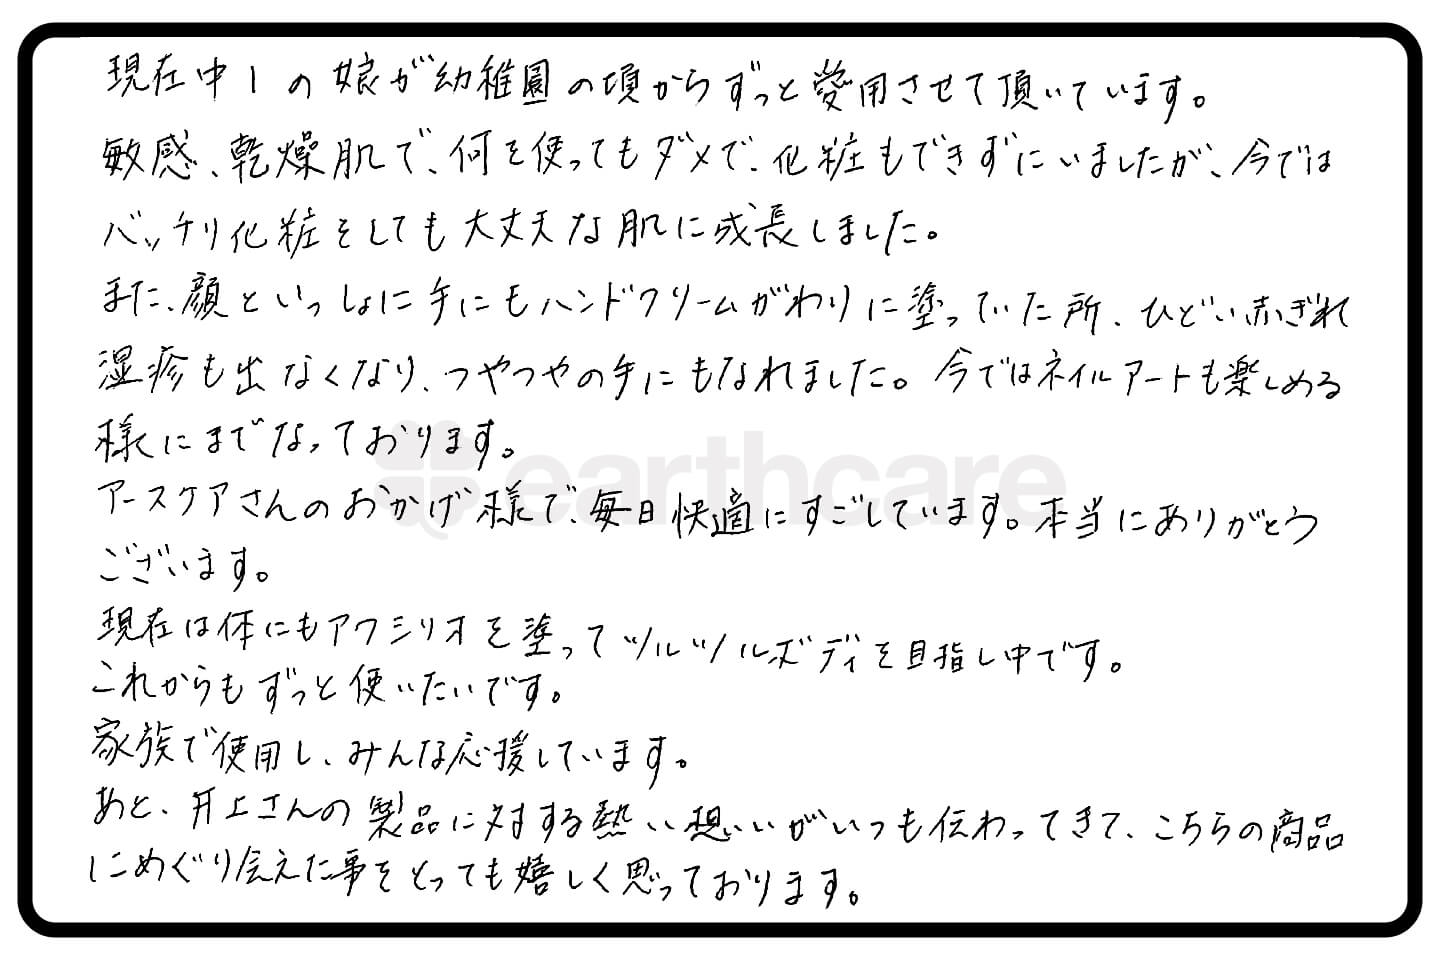 現在中1の娘が幼稚園の頃からずっと愛用させて頂いています。
敏感、乾燥肌で、何を使ってもダメで、化粧もできずにいましたが、今では
バッチリ化粧をしても大丈夫な肌に成長しました。
また、顔といっしょに手にもハンドクリームがわりに塗っていた所、ひどい赤ぎれ
湿疹も出なくなり、つやつやの手にもなれました。今ではネイルアートも楽しめる
様にまでなっております。
earthcare
アースケアさんのおかげ様で、毎日快適にすごしています。本当にありがとう
ございます。
現在は体にもアクシリオを塗ってツルツルボディを目指し中です。
これからもずっと使いたいです。
家族で使用し、みんな応援しています。
あと、井上さんの製品に対する熱い想いがいつも伝わってきて、こちらの商品
にめぐり会えた事をとっても嬉しく思っております。